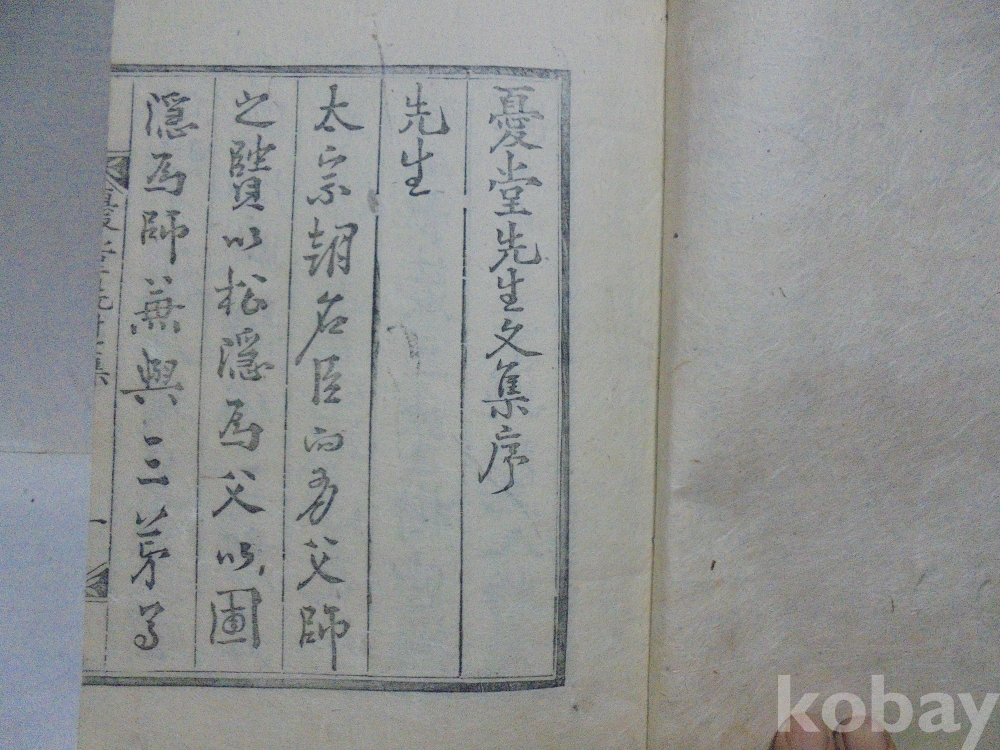 憂堂先生文集序
先生
太宗朝名臣而有父師
之賢以松隱爲父以圃
隱爲師兼與三弟
憂堂先生文集
一
kobay